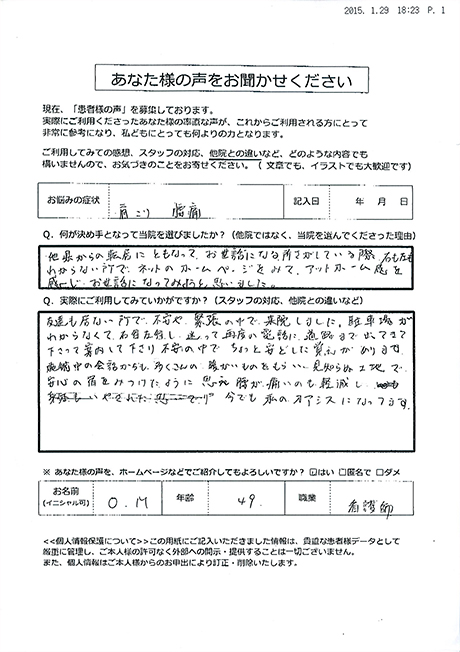 2015. 1.29 18:23 P. 1
あなた様の声をお聞かせください
現在、「患者様の声」を募集しております。
実際にご利用くださったあなた様の率直な声が、これからご利用される方にとって
非常に参考になり、私どもにとっても何よりの力となります。
ご利用してみての感想、スタッフの対応、他院との違いなど、どのような内容でも
構いませんので、お気づきのことをお寄せください。（ 文章でも、イラストでも大歓迎です）
お悩みの症状 肩こり 腰痛 記入日 年 月 日
Q. 何が決め手となって当院を選びましたか？（他院ではなく、当院を選んでくださった理由）
他県からの転居にともなって、お世話になる所をさがしている際、右も左も
わからない所で、ネットのホームページをみて、アットホーム感を
感じ、お世話になってみようと思いました。
Q. 実際にご利用してみていかがですか？（スタッフの対応、他院との違いなど）
友達も居ない所で、不安や、緊張の中で、来院しました。駐車場が
わからなくて、右往左往し、迷って、再度の電話に、道路まで出てきて
下さって案内して下さり、不安の中で、ちょっと安どした覚えがあります。
施術中の会話からも、たくさんの、暖かいものをもらい、見知らぬ土地で
安心の宿をみつけたように思え、腰が痛いのも軽減し、
今でも私のオアシスになってます。
※ あなた様の声を、ホームページなどでご紹介してもよろしいですか？ ☑はい □匿名で □ダメ
お名前 (イニシャル可) O.M 年齢 49. 職業 看護師
<<個人情報保護について>>この用紙にご記入いただきました情報は、貴重な患者様データとして
厳重に管理し、ご本人様の許可なく外部への開示・提供することは一切ございません。
また、個人情報はご本人様からのお申出により訂正・削除いたします。